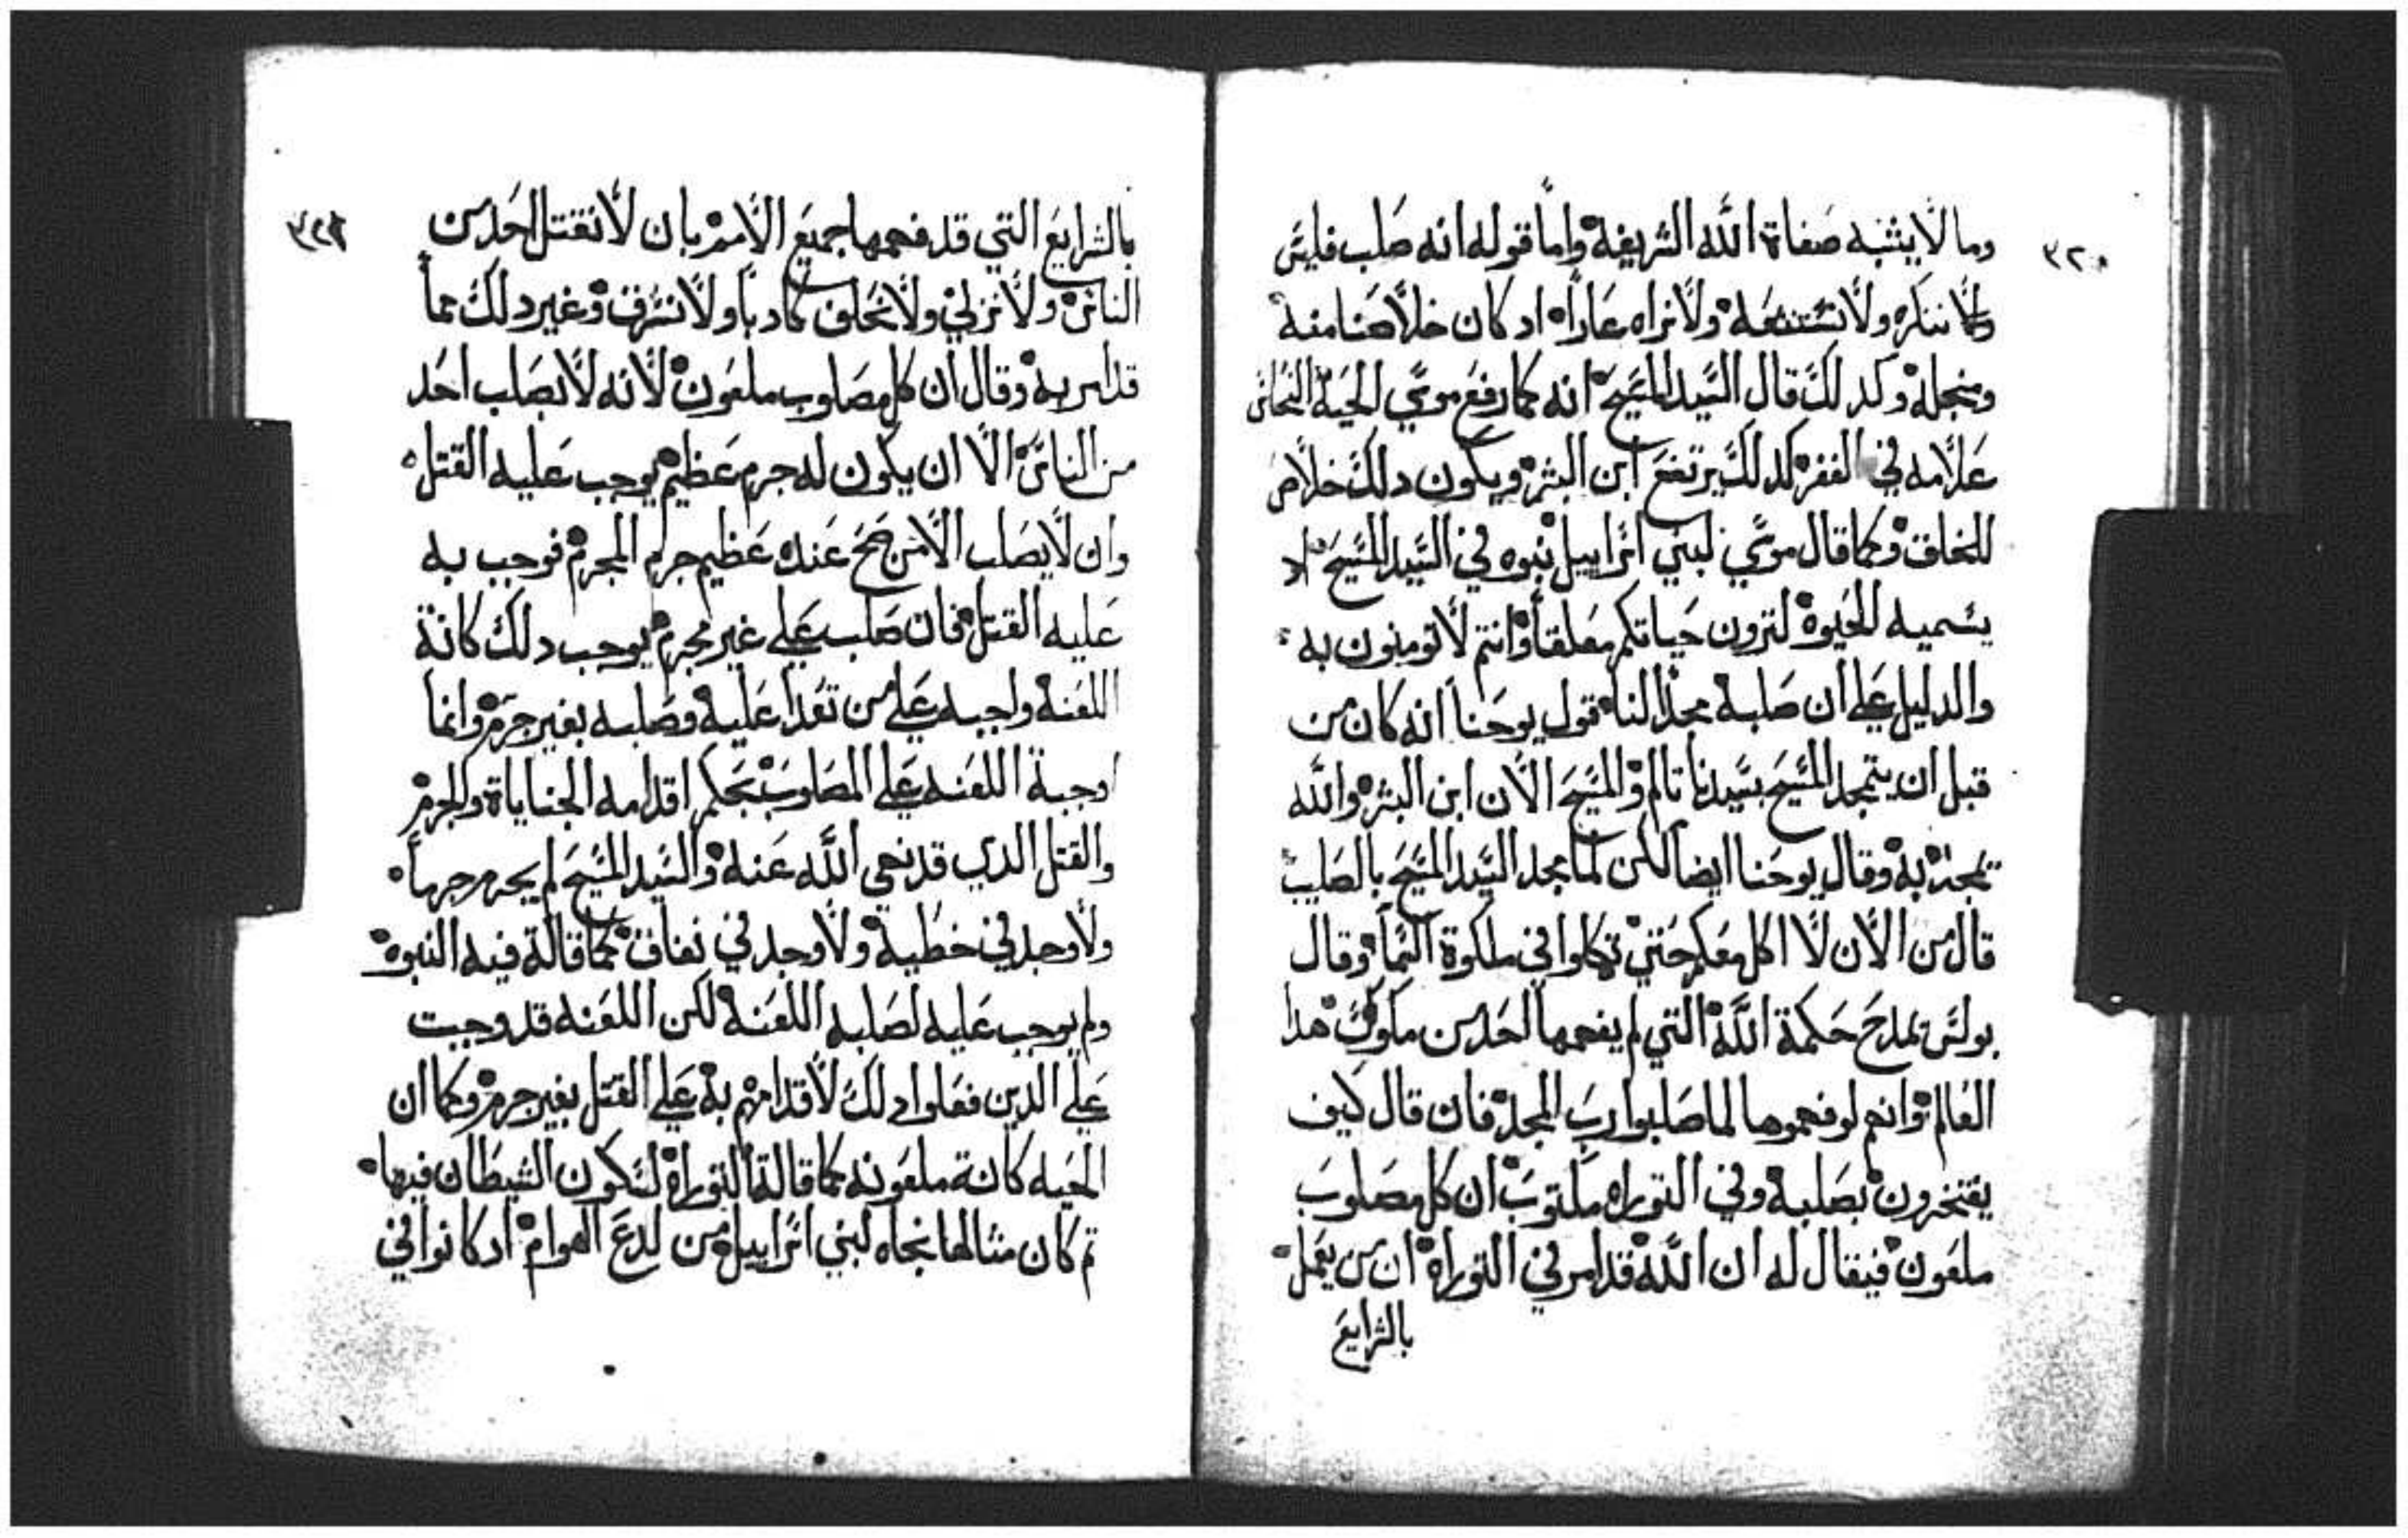 ٣٢٠
وما لا يشبه صفاة الله الشريفه واما قوله انه صلب فليس
ننكره ولا نستشنعه ولا نراه عاراً اد كان خلاصنا منه
ومنجله وكدلك قال السيد المسيح انه كما رفع موسي الحية النحاس
علامه في القفر كدلك يرتفع ابن البشر ويكون دلك خلاص
للخلق وكما قال موسي لبني اسراييل نبوه في السيد المسيح اد
يسميه الحيوة لترون حياتكم معلقاً وانتم لا تومنون به
والدليل علي ان صلبة مجداً لنا قول يوحنا انه كان من
قبل ان يتمجد المسيح بسيدنا تالم والمسيح الان ابن البشر والله
تمجد به وقال يوحنا ايضاً لكن لما مجد السيد المسيح بالصليب
قال من الان لا اكل معكم حتي تكلوا في ملكوة السماً وقال
بولس يمدح حكمة الله التي لم يفهمها احد من ملوك هدا
العالم وانهم لو فهموها لما صلبوا رب المجد فان قال كيف
يفتخرون بصلبه وفي التوراه مكتوب ان كل مصلوب
ملعون فيقال له ان الله قد امر في التوراه ان من يعمل
بالشرايع
بالشرايع التي قد فهمها جميع الامم بان لا تقتل احد من
الناس ولا تزني ولا تحلف كادباً ولا تسرق وغير دلك مما
قد امر به وقال ان كل مصلوب ملعون لانه لا يصلب احد
من الناس الا ان يكون له جرم عظيم يوجب عليه القتل
وان لا يصلب الا من صح عنده عظيم جرم المجرم فوجب به
عليه القتل فان صلب علي غير مجرم يوجب دلك كانة
اللعنة واجبه علي من تعدا عليه وصلبه بغير جرم وانما
اوجبة اللعنه علي المصلوب بحكم اقدامه الجناياة والجرم
والقتل الدي قد نهي الله عنه والسيد المسيح لم يجرم جرماً
ولا وجد في خطية ولا وجد في نفاق كما قالة فيه النبوة
ولم يوجب عليه لصلبه اللعنة لكن اللعنه قد وجبت
علي الدين فعلوا دلك لاقدامهم به علي القتل بغير جرم وكما ان
الحيه كانة ملعونه كما قالة التوراة لتكون الشيطان فيها
تم كان مثالها نجاه لبني اسراييل من لدع الهوام اد كانوا في